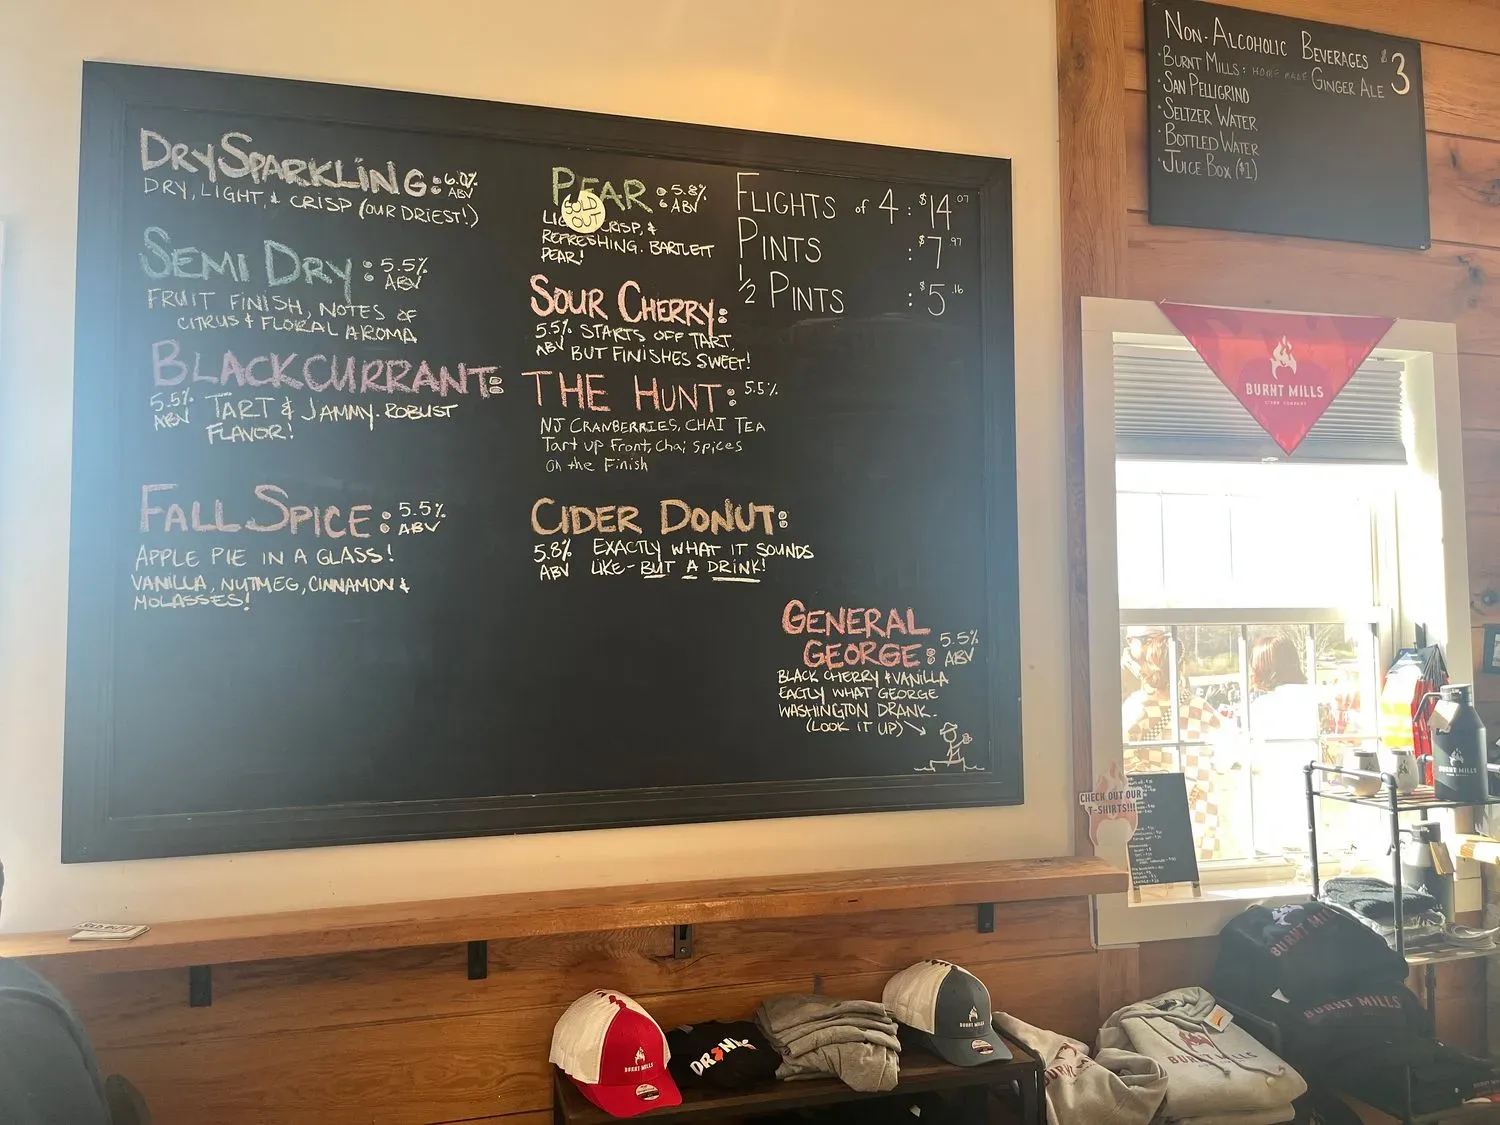 DRY SPARKLING: 6.0% ABV
DRY, LIGHT, & CRISP (OUR DRIEST!)
SEMI DRY: 5.5% ABV
FRUIT FINISH, NOTES OF
CITRUS & FLORAL AROMA
BLACKCURRANT:
5.5% ABV
TART & JAMMY. ROBUST
FLAVOR!
FALL SPICE: 5.5% ABV
APPLE PIE IN A GLASS!
VANILLA, NUTMEG, CINNAMON &
MOLASSES!
PEAR: 5.8% ABV
SOLD OUT
CRISP, &
REFRESHING. BARTLETT
PEAR!
SOUR CHERRY:
5.5% ABV
STARTS OFF TART,
BUT FINISHES SWEET!
THE HUNT: 5.5%
NJ CRANBERRIES, CHAI TEA
Tart up Front, Chai Spices
On the Finish
CIDER DONUT:
5.8% ABV
EXACTLY WHAT IT SOUNDS
LIKE - BUT A DRINK!
FLIGHTS OF 4: $14.07
PINTS: $7.97
1/2 PINTS: $5.16
GENERAL
GEORGE: 5.5% ABV
BLACK CHERRY & VANILLA
EACTLY WHAT GEORGE
WASHINGTON DRANK.
(LOOK IT UP)
NON-ALCOHOLIC BEVERAGES $3
· BURNT MILLS: HOME MADE GINGER ALE
· SAN PELLIGRINO
· SELTZER WATER
· BOTTLED WATER
· JUICE BOX ($1)
BURNT MILLS
CIDER COMPANY
CHECK OUT OUR
T-SHIRTS!!!
BURNT MILLS
BURNT MILLS
BURNT MILLS
BURNT MILLS
BURNT MILLS
BURNT MILLS